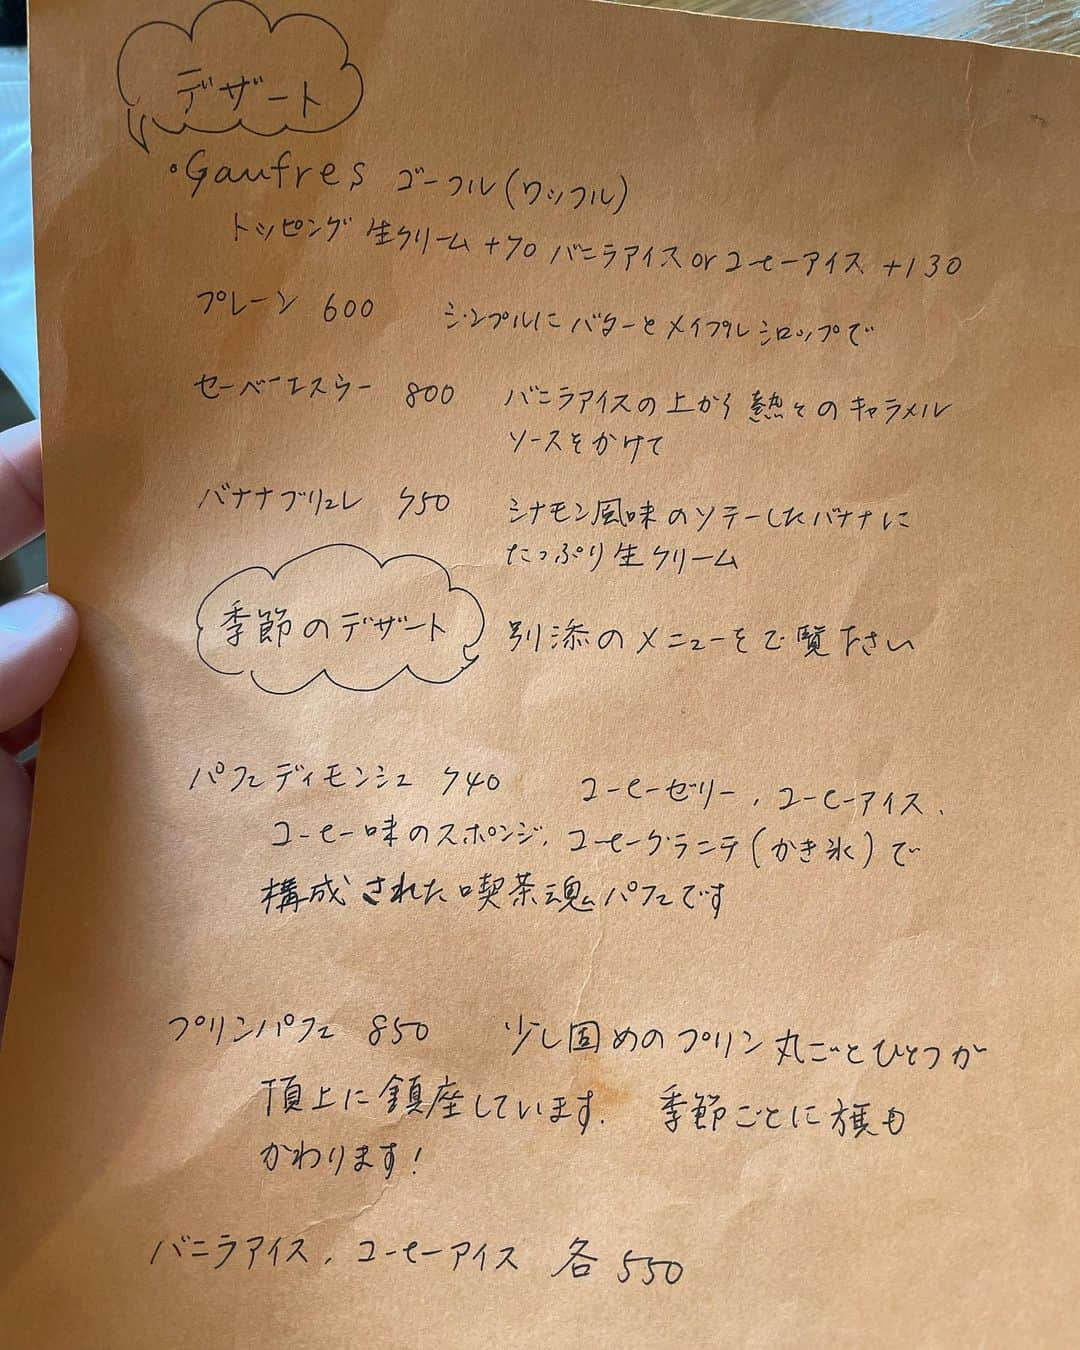 デザート
・Gaufres ゴーフル(ワッフル)
トッピング 生クリーム +70 バニラアイス or コーヒーアイス +130
プレーン 600 シンプルにバターとメイプルシロップで
セーベーエスウー 800 バニラアイスの上から熱々のキャラメル
ソースをかけて
バナナブリュレ 750 シナモン風味のソテーしたバナナに
たっぷり生クリーム
季節のデザート 別添のメニューをご覧ださい
パフェディモンシュ 740 コーヒーゼリー、コーヒーアイス、
コーヒー味のスポンジ、コーヒーグラニテ(かき氷)で
構成された喫茶魂パフェです
プリンパフェ 850 少し固めのプリン丸ごとひとつが
頂上に鎮座しています. 季節ごとに旗も
かわります!
バニラアイス、コーヒーアイス 各550